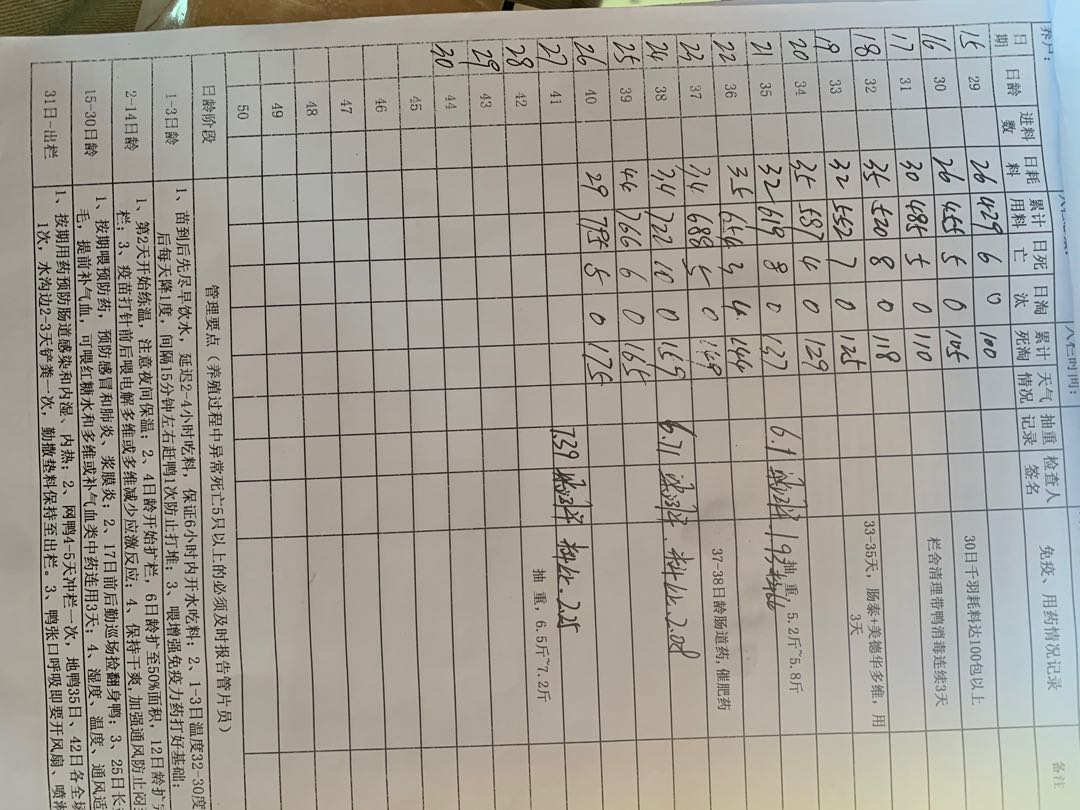 养户： 入栏时间：
日期 日龄 进料数 日耗料 累计用料 日死亡 日淘汰 累计死淘 天气情况 抽重记录 检查人签名 免疫、用药情况记录 备注
15 29 26 429 6 0 100 30日千羽耗料达100包以上
16 30 26 455 5 0 105 栏舍清理带鸭消毒连续3天
17 31 30 485 5 0 110
18 32 35 520 8 0 118 33-35天，肠泰+美德华多维，用3天
19 33 32 552 7 0 125
20 34 35 587 4 0 129
21 35 32 619 8 0 137 6.1 抽重，5.2斤~5.8斤
22 36 35 654 3 4 144
23 37 34 688 5 0 149 37-38日龄肠道药,催肥药
24 38 34 722 10 0 159 6.71 料比.2.08
25 39 44 766 6 0 165
26 40 29 795 8 0 175
27 41 7.39 料比.2.25 抽 重，6.5斤~7.2斤
28 42
29 43
30 44
45
46
47
48
49
50
日龄阶段 管理要点（养殖过程中异常死亡5只以上的必须及时报告管片员）
1-3日龄 1、苗到后先尽早饮水，延迟2-4小时吃料，保证6小时内开水吃料；2、1-3日温度32-30度
后每天降1度，间隔15分钟左右赶鸭1次防止打堆；3、喂增强免疫力药打好基础；
2-14日龄 1、第2天开始练温，注意夜间保温；2、4日龄开始扩栏，6日龄扩至50%面积，12日龄扩
栏；3、疫苗打针前后喂电解多维或多维减少应激反应；4、保持干爽,加强通风防止闷
15-30日龄 1、按期喂预防药，预防感冒和肺炎、浆膜炎；2、17日前后勤巡场捡翻身鸭；3、25日长
毛，提前补气血，可喂红糖水和多维或补气血类中药连用3天；4、湿度、温度、通风适
31日-出栏 1、按期用药预防肠道感染和内湿、内热；2、网鸭4-5天冲栏一次，地鸭35日、42日各全场
1次，水沟边2-3天铲粪一次，勤撒垫料保持至出栏。3、鸭张口呼吸即要开风扇、喷淋